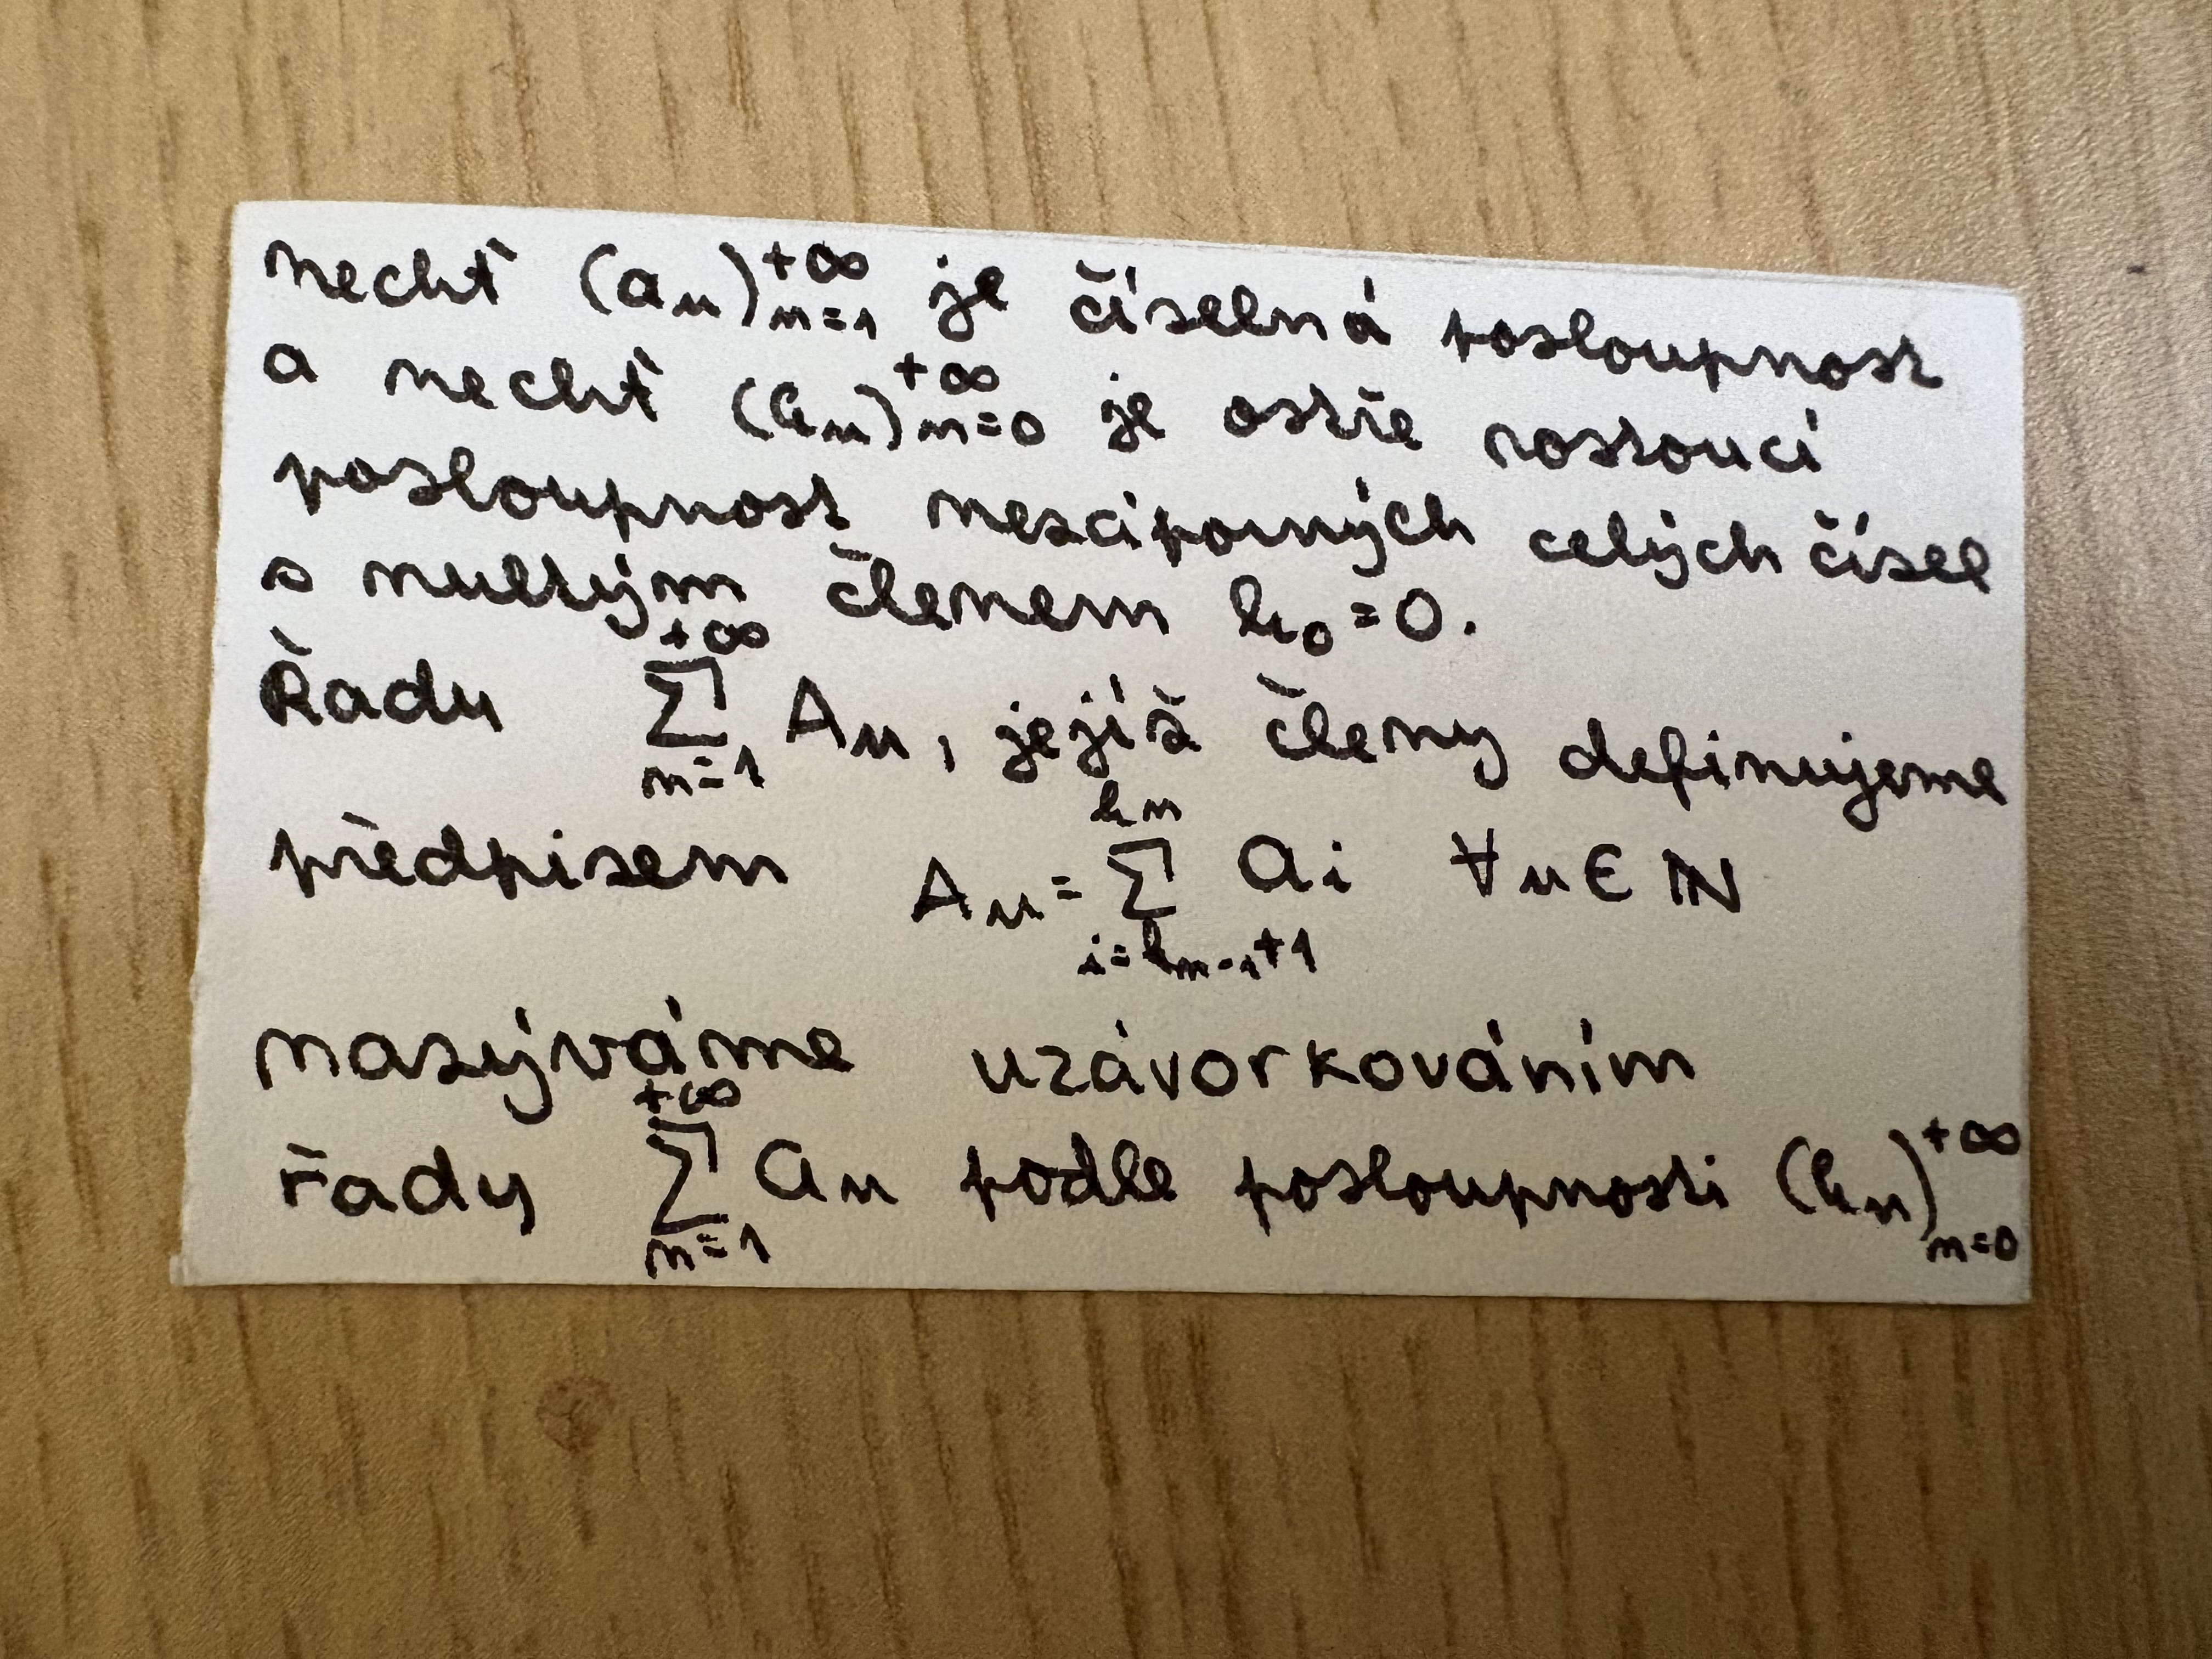 nechť (aₙ)ₙ₌₁^+∞ je číselná posloupnost
a nechť (kₙ)ₙ₌₀^+∞ je ostře rostoucí
posloupnost nezáporných celých čísel
s nultým členem k₀=0.
Řadu ∑ₙ₌₁^+∞ Aₙ, jejíž členy definujeme
předpisem Aₙ = ∑_{i=kₙ₋₁+1}^{kₙ} aᵢ ∀n∈ℕ
nazýváme uzávorkováním
řady ∑ₙ₌₁^+∞ aₙ podle posloupnosti (kₙ)ₙ₌₀^+∞